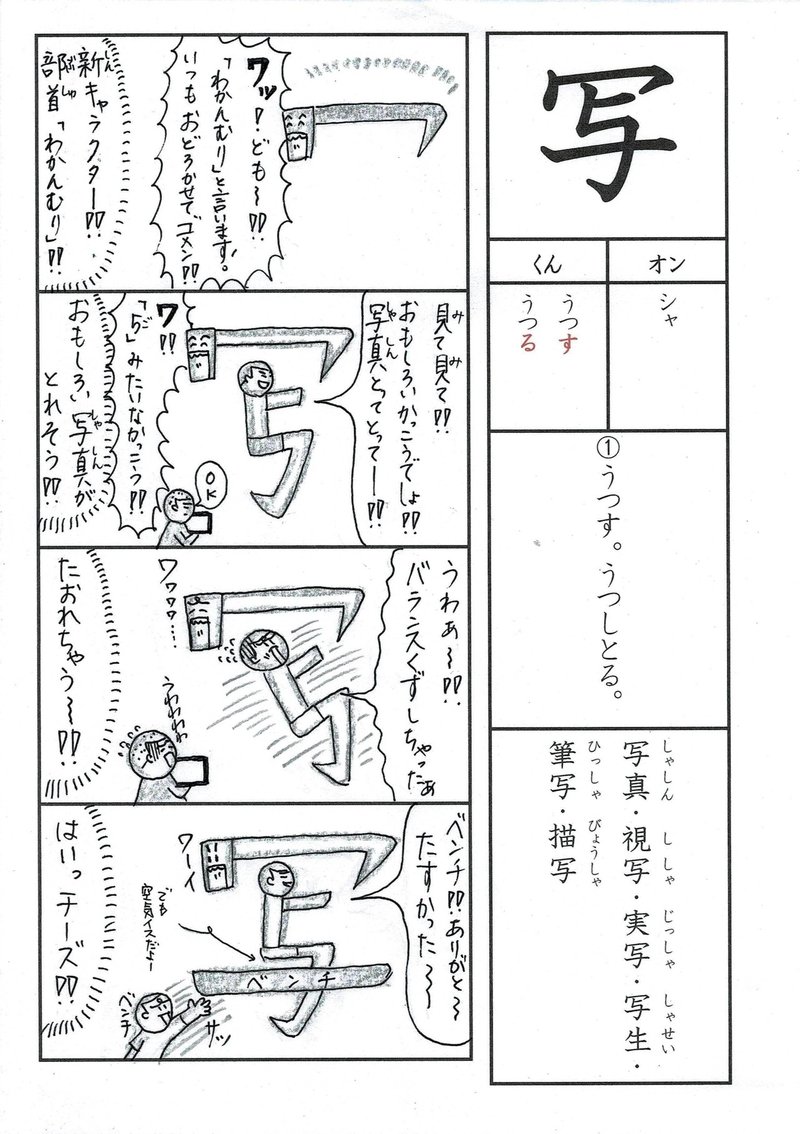 写
オン
くん
シャ
うつす
うつる
①うつす。うつしとる。
しゃしん ししゃ じっしゃ しゃせい
写真・視写・実写・写生・
ひっしゃ びょうしゃ
筆写・描写
ワッ！ども〜!!
「わかんむり」と言います。
いつもおどろかせてゴメン!!
しん
新キャラクター!!
ぶしゅ
部首「わかんむり」!!
み み
見て見て!!
おもしろいかっこうでしょ!!
しゃしん
写真とってとってー!!
ワ!!
ご
「5」みたいなかっこう!!
OK
しゃしん
おもしろい写真が
とれそう!!
うわぁ〜!!
バランスくずしちゃったぁ
ワワワワ…
うわわわわ
たおれちゃう〜!!
ベンチ!!ありがと〜
たすかった〜〜
ワーイ
でも
空気イスだよー
ベンチ
サッ
ベンチ
はいっチーズ!!